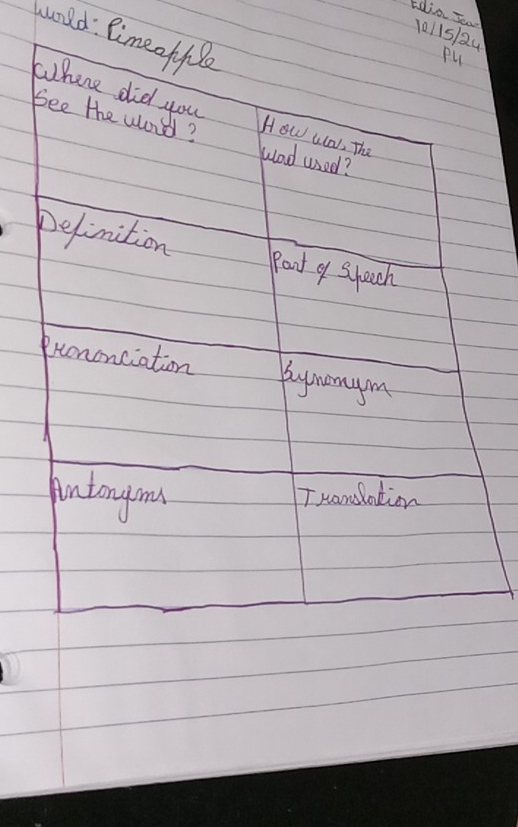 10/15/24
P4
World: Pineapple
Where did you
See the word?
How was the
word used?
Definition
Part of Speech
Prononciation
Synonym
Antonyms
Translation